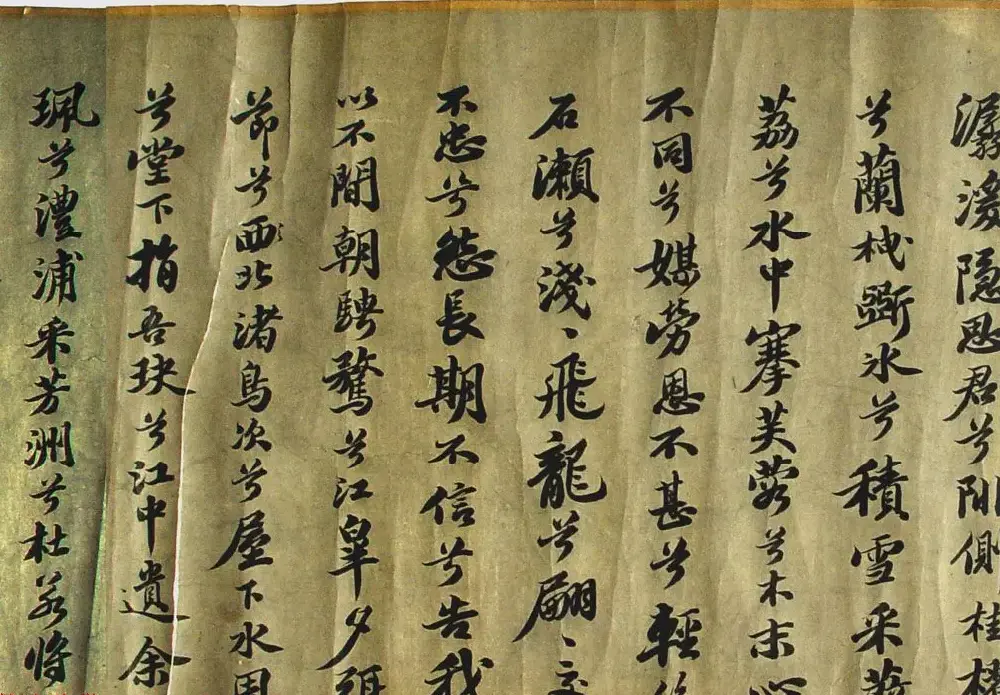 潺湲隱思君兮陫側桂
兮蘭枻斲冰兮積雪采薜
荔兮水中搴芙蓉兮木末心
不同兮媒勞恩不甚兮輕絕
石瀨兮淺〻飛龍兮翩〻交
不忠兮怨長期不信兮告我
以不間朝騁騖兮江皋夕弭
節兮西北渚鳥次兮屋下水周
兮堂下捐吾玦兮江中遺余
珮兮澧浦采芳洲兮杜若將